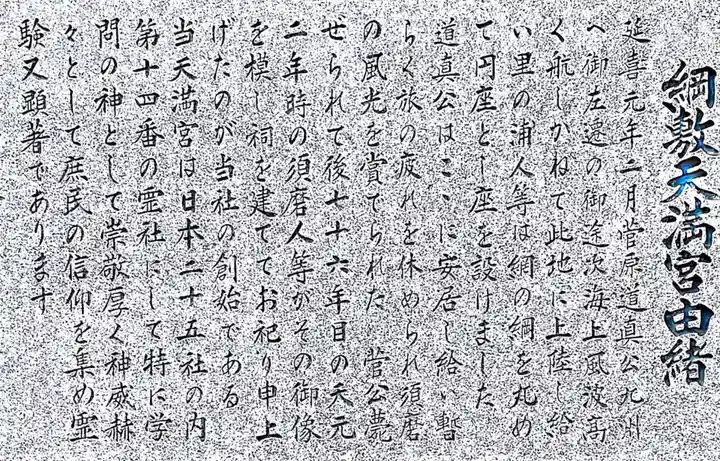 綱敷天満宮由緒
延喜元年二月菅原道真公九州
へ御左遷の御途次海上風波高
く航しかねて此地に上陸し給
い里の浦人等は網の綱を丸め
て円座とし座を設けました
道真公はこゝに安居し給い暫
らく旅の疲れを休められ須磨
の風光を賞でられた　菅公薨
せられて後七十六年目の天元
二年時の須磨人等がその御像
を模し祠を建ててお祀り申上
げたのが当社の創始である
当天満宮は日本二十五社の内
第十四番の霊社にして特に学
問の神として崇敬厚く神威赫
々として庶民の信仰を集め霊
験又顕著であります